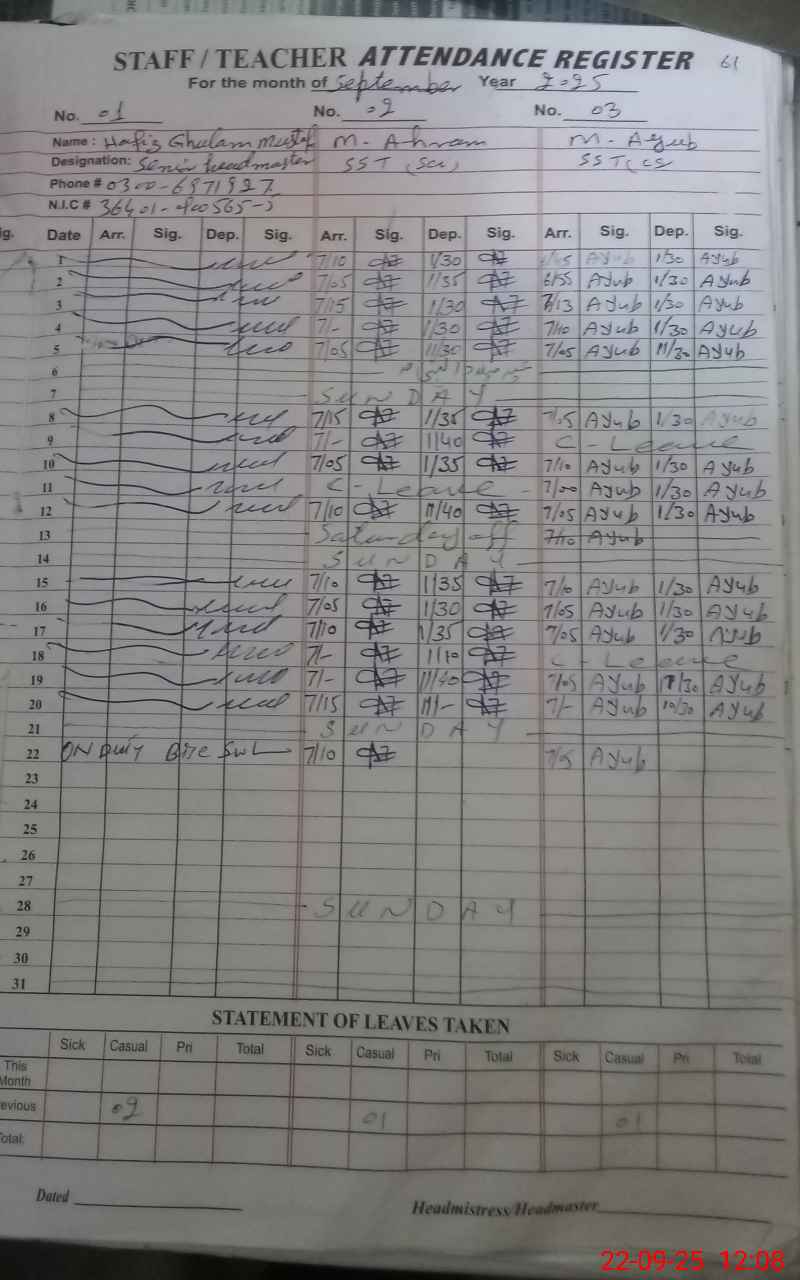 STAFF / TEACHER ATTENDANCE REGISTER 61
For the month of September Year 2025
No. 01 No. 02 No. 03
Name : Hafiz Ghulam Mustaf M. Ahram M. Ayub
Designation: Senir headmaster SST (sci) SST (cs
Phone # 0300-6971927
N.I.C # 36401-
ig. Date Arr. Sig. Dep. Sig. Arr. Sig. Dep. Sig. Arr. Sig. Dep. Sig.
1 7/10 1/30 Ayub 1/30 Ayub
2 7/05 1/35 6/55 Ayub 1/30 Ayub
3 7/15 1/30 7/13 Ayub 1/30 Ayub
4 7/- 1/30 7/10 Ayub 1/30 Ayub
5 7/05 11/30 7/05 Ayub 11/30 Ayub
6
7 SUNDAY
8 7/15 1/35 7/05 Ayub 1/30 Ayub
9 7/- 1/40 C - Leave
10 7/05 1/35 7/10 Ayub 1/30 Ayub
11 C - Leave - 7/00 Ayub 1/30 Ayub
12 7/10 11/40 7/05 Ayub 1/30 Ayub
13 Saturday off 7/10 Ayub
14 SUNDAY
15 7/10 1/35 7/10 Ayub 1/30 Ayub
16 7/05 1/30 7/05 Ayub 1/30 Ayub
17 7/10 1/35 7/05 Ayub 1/30 Ayub
18 7/- 1/10 C - Leave
19 7/- 11/40 7/05 Ayub 1/30 Ayub
20 7/15 11/- 7/- Ayub 10/30 Ayub
21 - SUNDAY -
22 ON Duty Bise Swl 7/10 7/5 Ayub
23
24
25
26
27
28 - SUNDAY
29
30
31
STATEMENT OF LEAVES TAKEN
Sick Casual Pri Total Sick Casual Pri Total Sick Casual Pri Total
This
Month
evious 02 01 01
otal:
Dated Headmistress/Headmaster
22-09-25 12:08